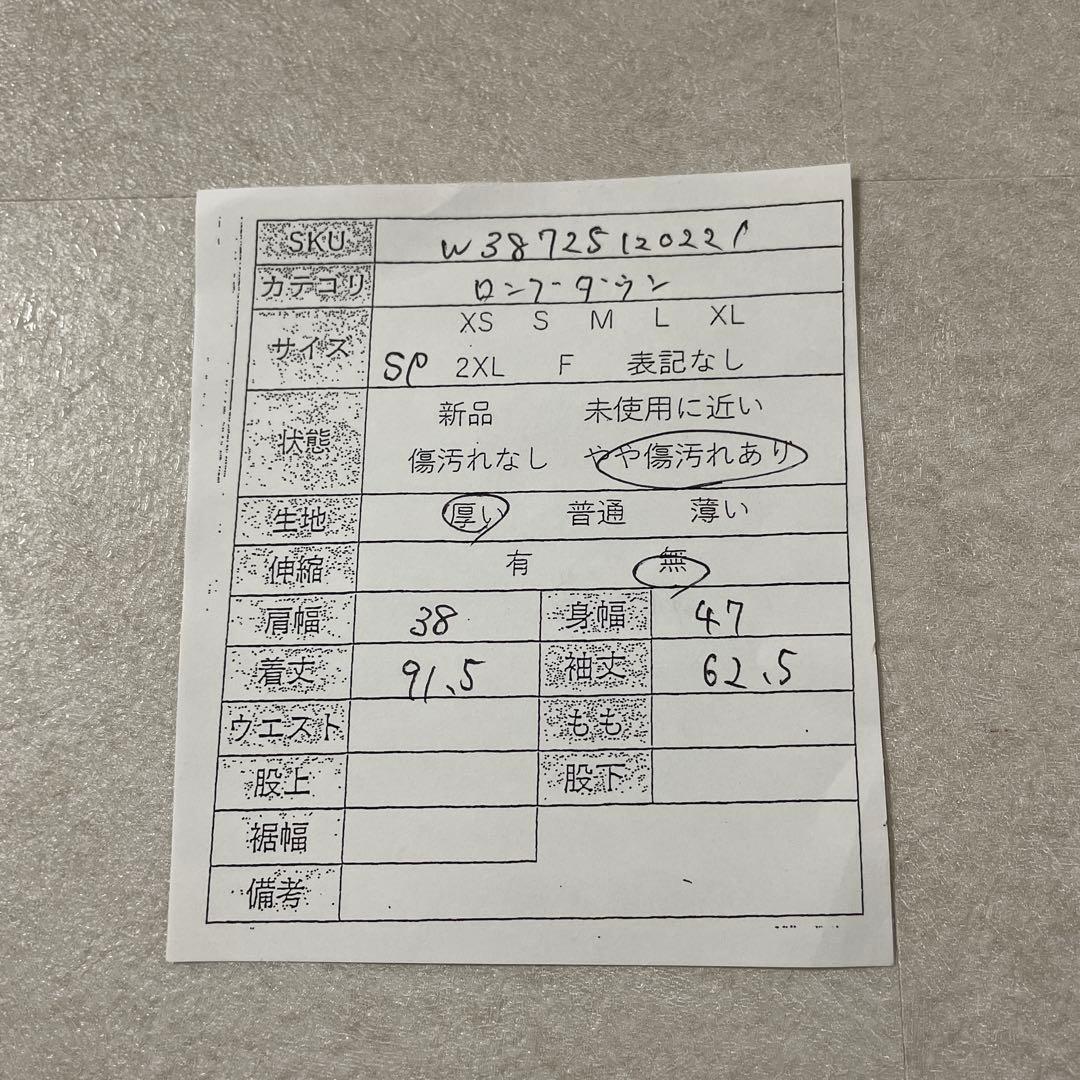 SKU W38725120221
カテゴリ ロングダウン
サイズ XS S M L XL
SP 2XL F 表記なし
状態 新品 未使用に近い
傷汚れなし やや傷汚れあり
生地 厚い 普通 薄い
伸縮 有 無
肩幅 38 身幅 47
着丈 91.5 袖丈 62.5
ウエスト もも
股上 股下
裾幅
備考